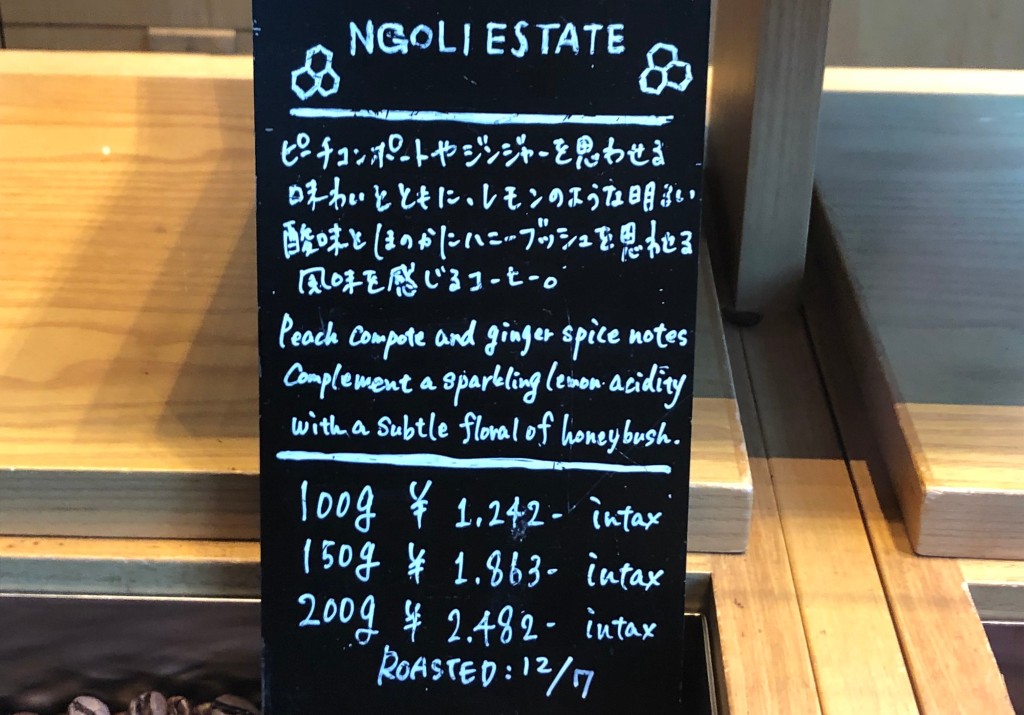 NGOLI ESTATE
ピーチコンポートやジンジャーを思わせる
味わいとともに、レモンのような明るい
酸味とほのかにハニーブッシュを思わせる
風味を感じるコーヒー。
Peach compote and ginger spice notes
Complement a sparkling lemon acidity
with a subtle floral of honeybush.
100g ¥ 1.242- intax
150g ¥ 1.863- intax
200g ¥ 2.482- intax
ROASTED: 12/7